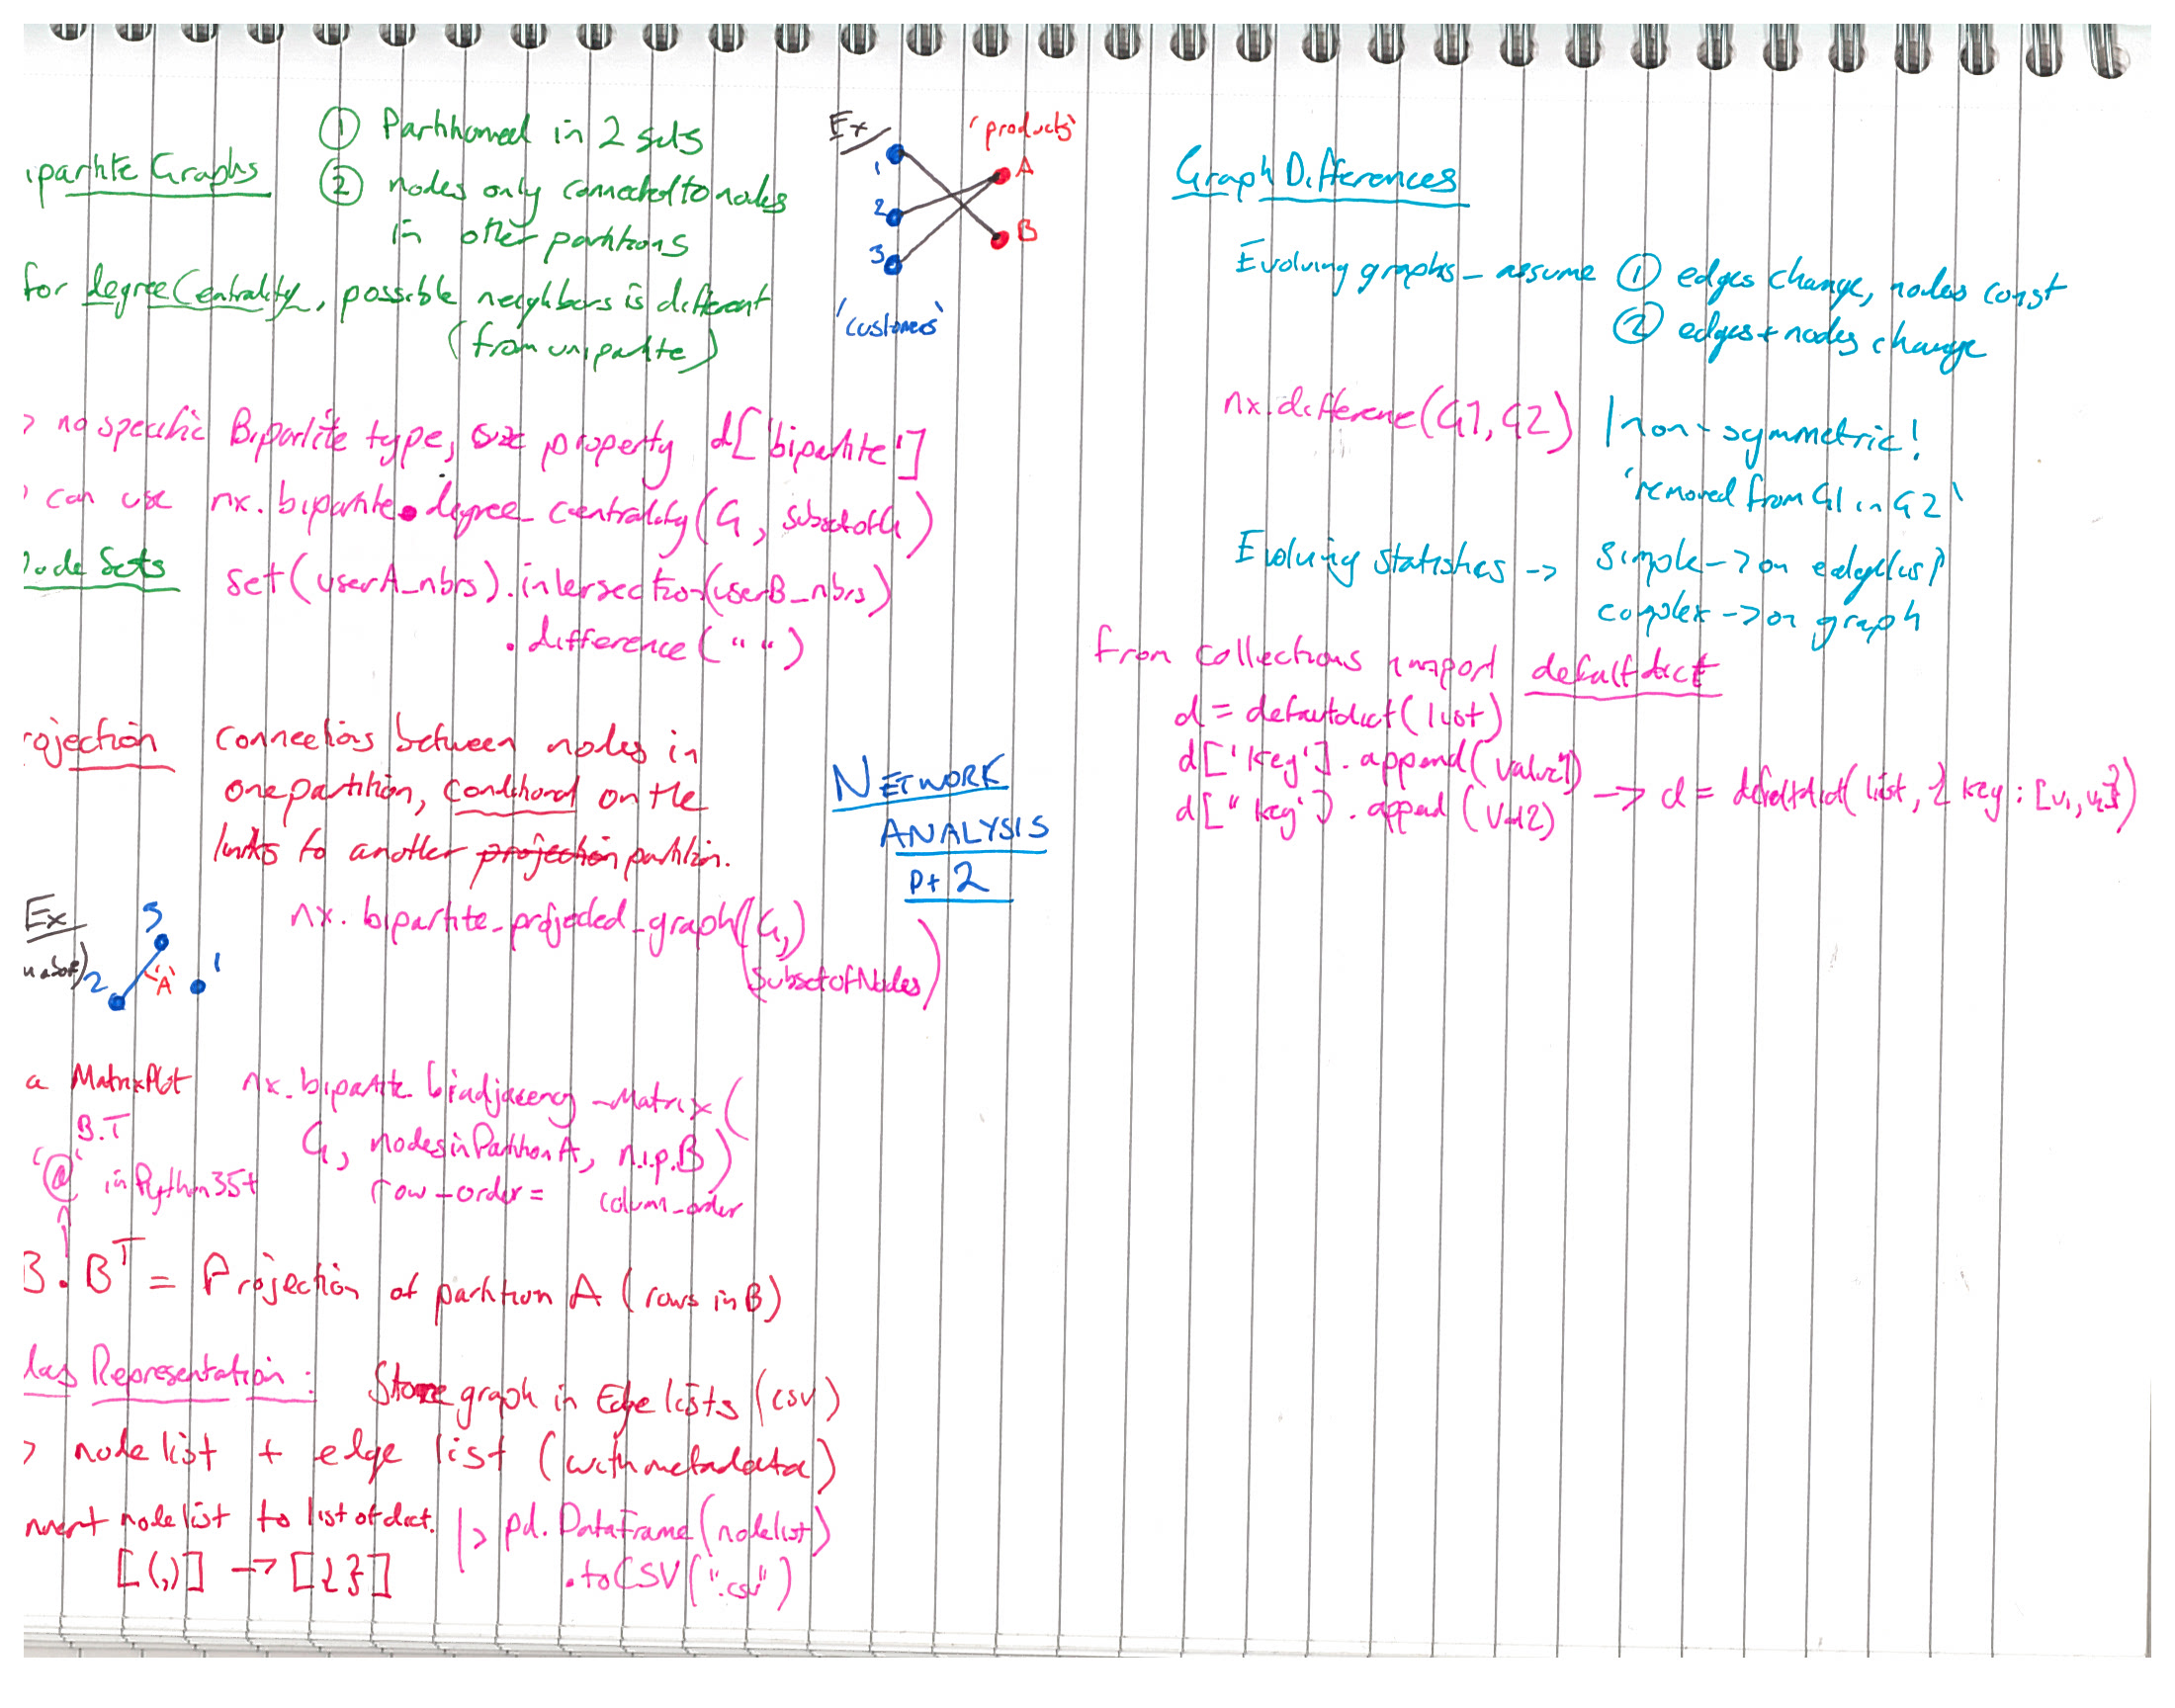 ipartite Graphs
① Partitioned in 2 sets
② nodes only connected to nodes
in other partitions
for degree Centrality, possible neighbors is different
(from unipartite)
Ex
'products'
1
2
3
A
B
'customers'
> no specific Bipartite type, use property d['bipartite']
> can use nx.bipartite.degree_centrality(G, subsetofG)
Node Sets
set(userA_nbrs).intersection(userB_nbrs)
.difference(" ")
rojection
connections between nodes in
one partition, conditional on the
links to another projection partition.
nx.bipartite_projected_graph(G,
subsetofNodes)
Ex
3
2
'A'
1
a MatrixPlot
nx.bipartite biadjacency_matrix(
G, nodesinPartitionA, n.i.p.B)
row_order= column_order
B.T
'@' in Python35+
B . Bᵀ = Projection of partition A (rows in B)
Representation:
Store graph in Edge lists (csv)
> node list + edge list (with metadata)
nvert node list to list of dict.
[(,)] -> [{}]
> pd.DataFrame(nodelist)
.toCSV(".csv")
NETWORK
ANALYSIS
pt 2
Graph Differences
Evolving graphs - assume ① edges change, nodes const
② edges + nodes change
nx.difference(G1, G2)
non-symmetric!
'removed from G1 in G2'
Evolving statistics -> simple -> on edgelist
complex -> on graph
from collections import defaultdict
d = defaultdict(list)
d['key'].append(value1)
d["key'].append(val2)
-> d = defaultdict(list, {key: [v₁, v₂]})